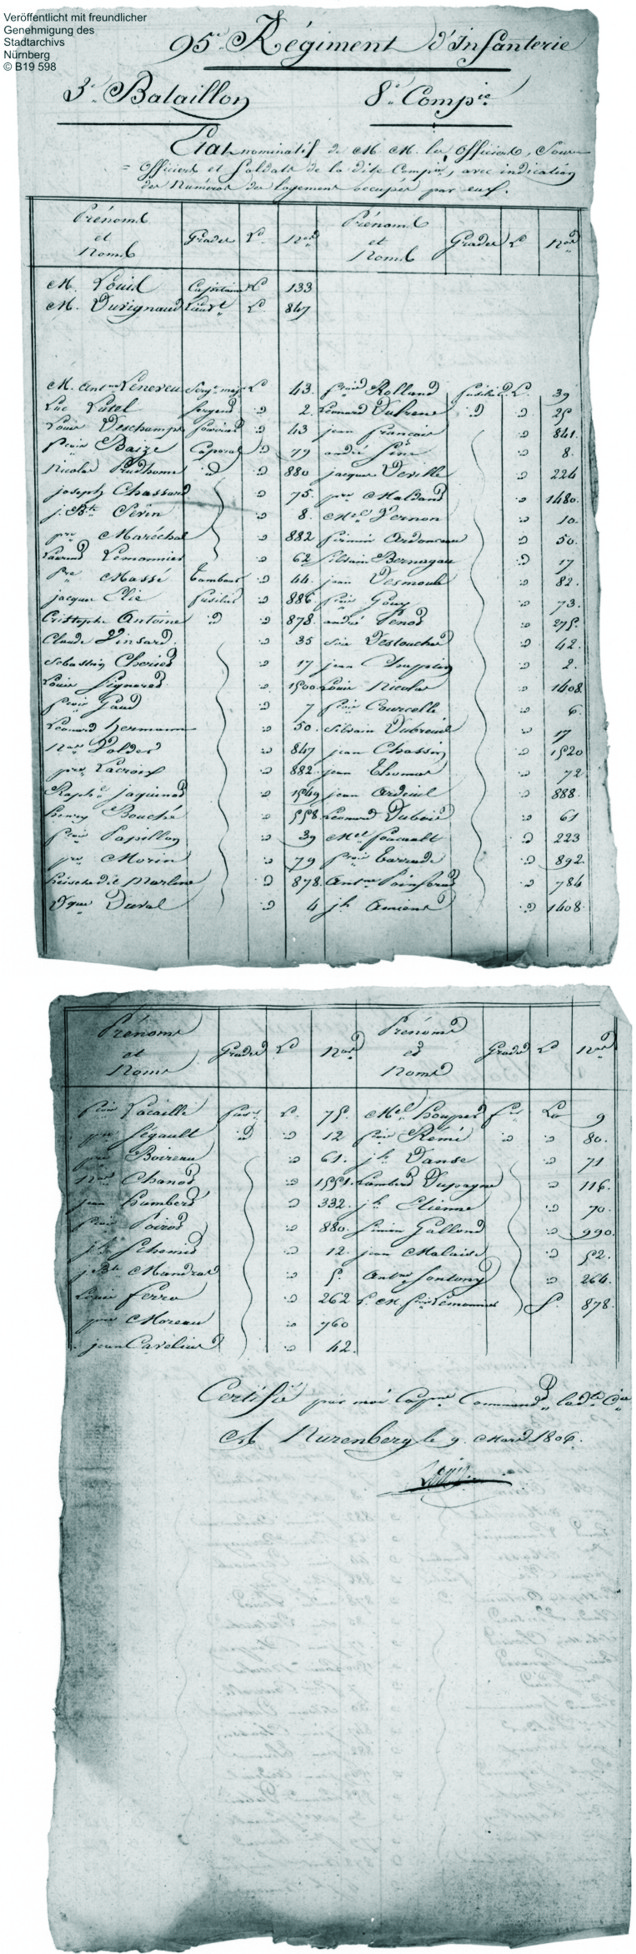 Veröffentlicht mit freundlicher
Genehmigung des
Stadtarchivs
Nürnberg
© B19 598
95e Régiment d'Infanterie
3e Bataillon 8e Compie
Etat nominatif de M M. les Officiers, Sous
Officiers et Soldats de la dite Compie, avec indication
des Numéros des logement occupés par eux.
Prénoms et Noms Grades Lo Nos Prénoms et Noms Grades Lo Nos
M. Louis Capitaine Lo 133
M. Duvignaud Lo 847
M. Antne Lenereu Sergt maj Lo 43 frois Rolland fusilier Lo 39
Luc Lutel Sergent 2 Léonard Dufrene 25
Louis Deschamps fourrier 43 jean François 841
frois Baize Caporal 79 andré 8
Nicolas Prudhome 880 jacques Deville 224
joseph Chassard 75 pre Maldand 1480
j. Bte Serin 8 Mel Vernon 10
pre Maréchal 882 firmin 50
Laurend Lemonnier 62 Silvain Bernagau 17
pre Massé Tambour 44 jean Desmoule 82
jacques Elie fusilier 886 frois Goux 73
Cristophe Antoine 878 andré 275
Claude Vinsard 35 Destouches 42
Sebastien 17 jean Chaplin 2
Louis Signored 1500 Louis Nicolas 1408
frois Gaud 7 frois Courcelle 6
Léonard hermann 50 Silvain Dubreuil 17
847 jean Chassin 1520
pre Lacroix 882 jean Thomas 72
Raphl jaquinod 1549 jean 888
henry Bouché 558 Léonard Dubois 61
frois Papillon 39 Mel foucault 223
pre Morin 79 frois Barrade 892
Marline 878 Antne 784
Dque Duval 4 jh Amiens 1408
Prénoms et Noms Grades Lo Nos Prénoms et Noms Grades Lo Nos
frois Lacaille fusr Lo 75 Mel fer Lo 9
pre Ségault 12 frois Rémi 80
pre Boireau 61 jh Danse 71
Chanod 1551 Lambert Dupagne 116
jean humbert 332 jh Etienne 70
frois Poirod 880 Simon Galland 990
jh Schmid 12 jean Malaise 52
j. Bte Mandras 5 Antne fontony 264
Louis ferra 262 878
pre Moreau 760
jean Cavelius 42
Certifié par moi Capne Commandt ladte Cie
A Nurenberg le 9. Mars 1806.
Louis